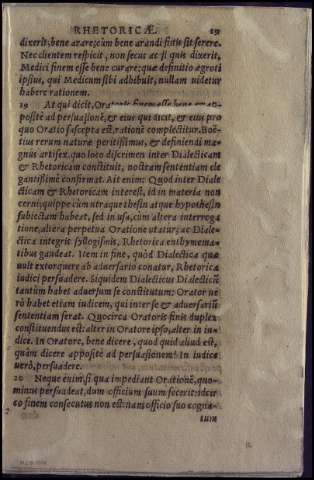 RHETORICÆ. 19
dixerit, bene arare; cùm bene arandi finis sit serere.
Nec clientem respicit, non secus ac si quis dixerit,
Medici finem esse bene curare; quæ definitio ægroti
ipsius, qui Medicum sibi adhibuit, nullam uidetur
habere rationem.
19 At qui dicit, Oratoris finem esse bene
positè ad persuasionē, & eius qui dicit, & eius pro
quo Oratio suscepta est, rationē complectitur. Boë-
tius rerum naturæ peritissimus, & definiendi ma-
gnus artifex, quo loco discrimen inter Dialecticam
& Rhetoricam constituit, nostram sententiam ele
gantissimè confirmat. Ait enim: Quod inter Diale
cticam & Rhetoricam interest, id in materia non
cerni; quippe cùm utraque thesin atque hypothesin
subiectam habeat, sed in usu, cùm altera interroga
tione, altera perpetua Oratione utatur; ac Diale-
ctica integris syllogismis, Rhetorica enthymema-
tibus gaudeat. Item in fine, quòd Dialectica quæ
uult extorquere ab aduersario conatur, Rhetorica
iudici persuadere. Siquidem Dialecticus Dialecticū
tantùm habet aduersum se constitutum: Orator ue
rò habet etiam iudicem, qui inter se & aduersariū
sententiam ferat. Quocirca Oratoris finis duplex
constituendus est: alter in Oratore ipso, alter in iu-
dice. In Oratore, bene dicere, quod quid aliud est,
quàm dicere appositè ad persuasionem? In iudice
uerò, persuadere.
20 Neque enim si qua impediant Orationē, quo-
minus persuadeat, dum officium suum fecerit: idcir
co finem consecutus non est: nam officio suo cogna-
tum